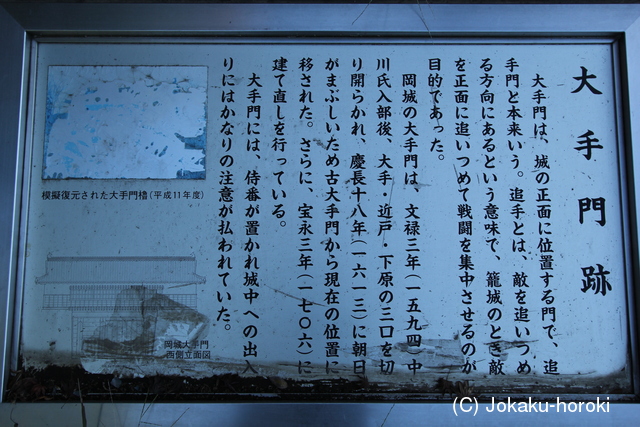 大手門跡
大手門は、城の正面に位置する門で、追
手門と本来いう。追手とは、敵を追いつめ
る方向にあるという意味で、籠城のとき敵
を正面に追いつめて戦闘を集中させるのが
目的であった。
岡城の大手門は、文禄三年(一五九四)中
川氏入部後、大手・近戸・下原の三口を切
り開らかれ、慶長十八年(一六一三)に朝日
がまぶしいため古大手門から現在の位置に
移された。さらに、宝永三年(一七〇六)に
建て直しを行っている。
大手門には、侍番が置かれ城中への出入
りにはかなりの注意が払われていた。
模擬復元された大手門櫓(平成11年度)
岡城大手門
西側立面図
(C) Jokaku-horoki